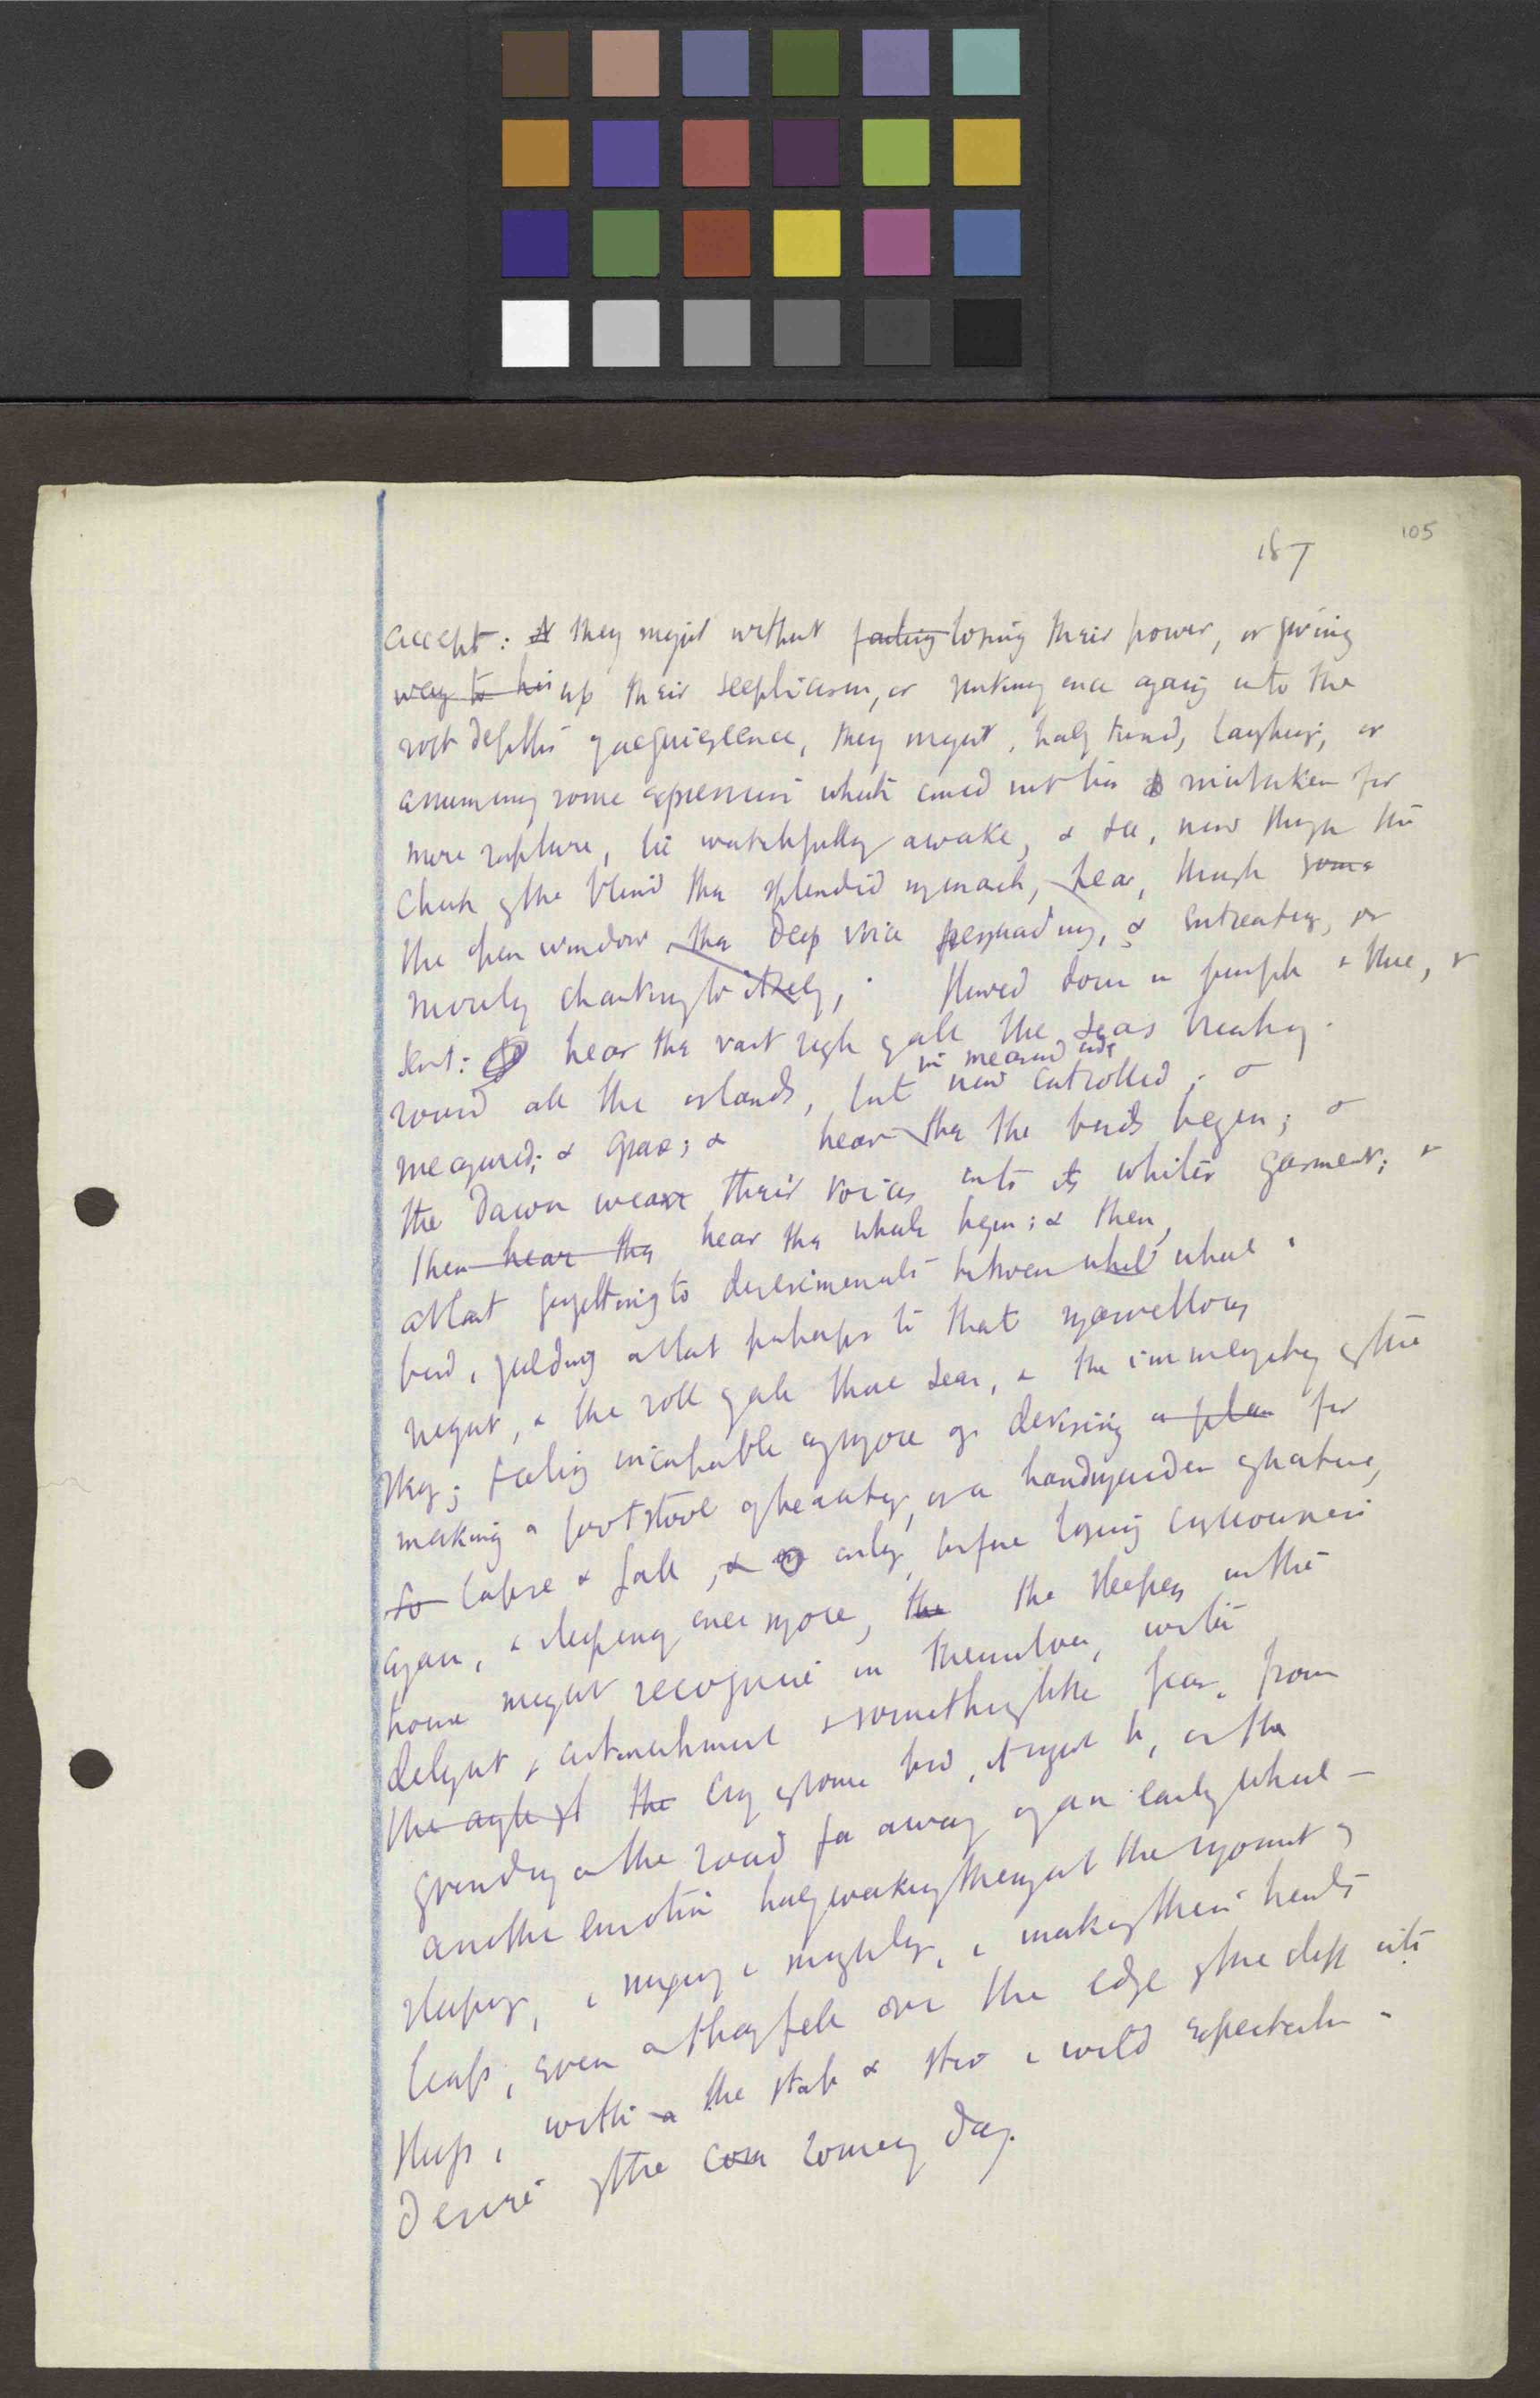 105
187
accept: ~~A~~ they might without ~~failing~~ losing their power, or giving
~~way to his~~ up their scepticism, or sinking once again into the
soft depths of acquiescence, they might, half turned, laughing, or
assuming some expression which could not be mistaken for
mere rapture, lie watchfully awake, & see, now through the
chink of the blind the splendid monarch, hear, through ~~some~~
the open window the deep voice persuading, & entreating, or
merely chanting to itself, flowed down in purple & blue, &
hear the vast sigh of all the seas breaking
in measured
round all the islands, but now controlled; &
measured; & grave; & hear the the birds begin; &
the Dawn weave their voices into its whiter garment; &
then ~~hear the~~ hear the wheels begin; & then,
at last forgetting to discriminate between wheel wheel &
bird, yielding at last perhaps to that marvellous
night, & the roll of all those seas, & the immensity of the
sky; feeling incapable any more of devising ~~a plan~~ for
making a footstool of beauty, or a handmaiden of nature,
~~so~~ lapse & fall, & only, before losing consciousness
again, & sleeping once more, ~~the~~ the sleepers in the
house might recognise in themselves, with
delight, astonishment & something like fear, from
~~the~~ ~~the~~ cry of some bird, it might be, or the
grinding on the road far away of an early wheel –
another emotion half waking them at the moment of
sleeping, & & making their hearts
leap, even as they fell over the edge of the cliff into
sleep, with the stab & stir & wild expectation
desire of the ~~com~~ coming day.